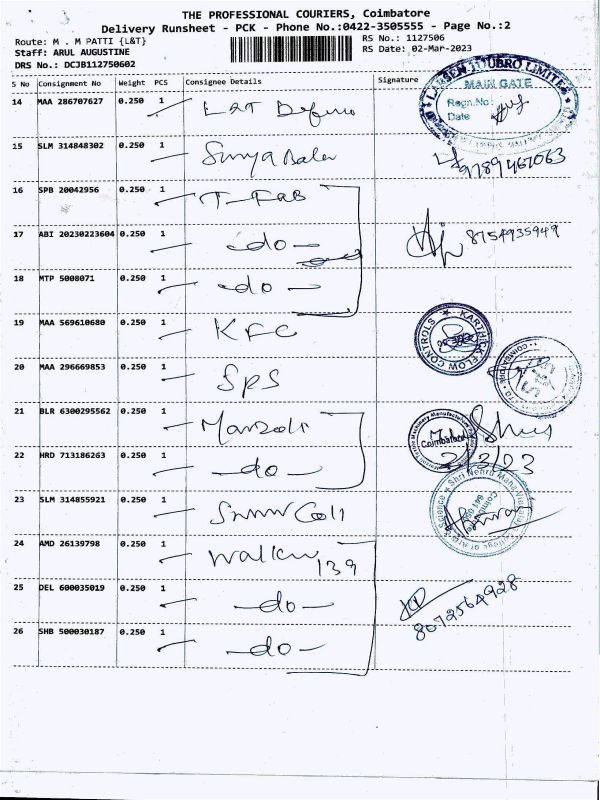 THE PROFESSIONAL COURIERS, Coimbatore
Delivery Runsheet - PCK - Phone No.:0422-3505555 - Page No.:2
Route: M . M PATTI {L&T}
RS No.: 1127506
Staff: ARUL AUGUSTINE
RS Date: 02-Mar-2023
DRS No.: DCJB112750602
S No Consignment No Weight PCS Consignee Details Signature
14 MAA 286707627 0.250 1 L&T
LARSEN & TOUBRO LIMITED
MAIN GATE
Regn.No:
Date
15 SLM 314848302 0.250 1 Surya Bala
9789467063
16 SPB 20042956 0.250 1 T-Fab
17 ABI 20230223604 0.250 1 -do-
8754935949
18 MTP 5008071 0.250 1 -do-
19 MAA 569610680 0.250 1 KFC
FLOW CONTROLS
20 MAA 296669853 0.250 1 SPS
21 BLR 6300295562 0.250 1
Coimbatore
22 HRD 713186263 0.250 1 -do-
2/3/23
23 SLM 314855921 0.250 1
24 AMD 26139798 0.250 1 139
25 DEL 600035019 0.250 1 -do-
8072564928
26 SHB 500030187 0.250 1 -do-